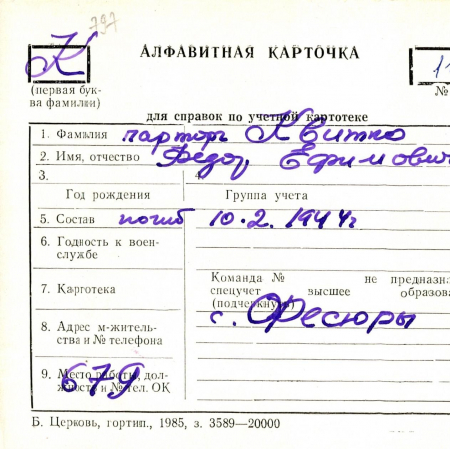 797
АЛФАВИТНАЯ КАРТОЧКА
К
11
(первая бук-
ва фамилии)
№
для справок по учетной картотеке
1. Фамилия парторг Квитко
2. Имя, отчество Федор Ефимович
3.
4.
Год рождения
Группа учета
5. Состав погиб 10.2.1944г
6. Годность к воен-
службе
7. Карготека
Команда № не предназна
спецучет высшее образова
(подчеркнуть)
8. Адрес м-житель-
ства и № телефона
с. Фесюры
9. Место работы, дол-
жность и № тел. ОК
679
Б. Церковь, гортип., 1985, з. 3589—20000